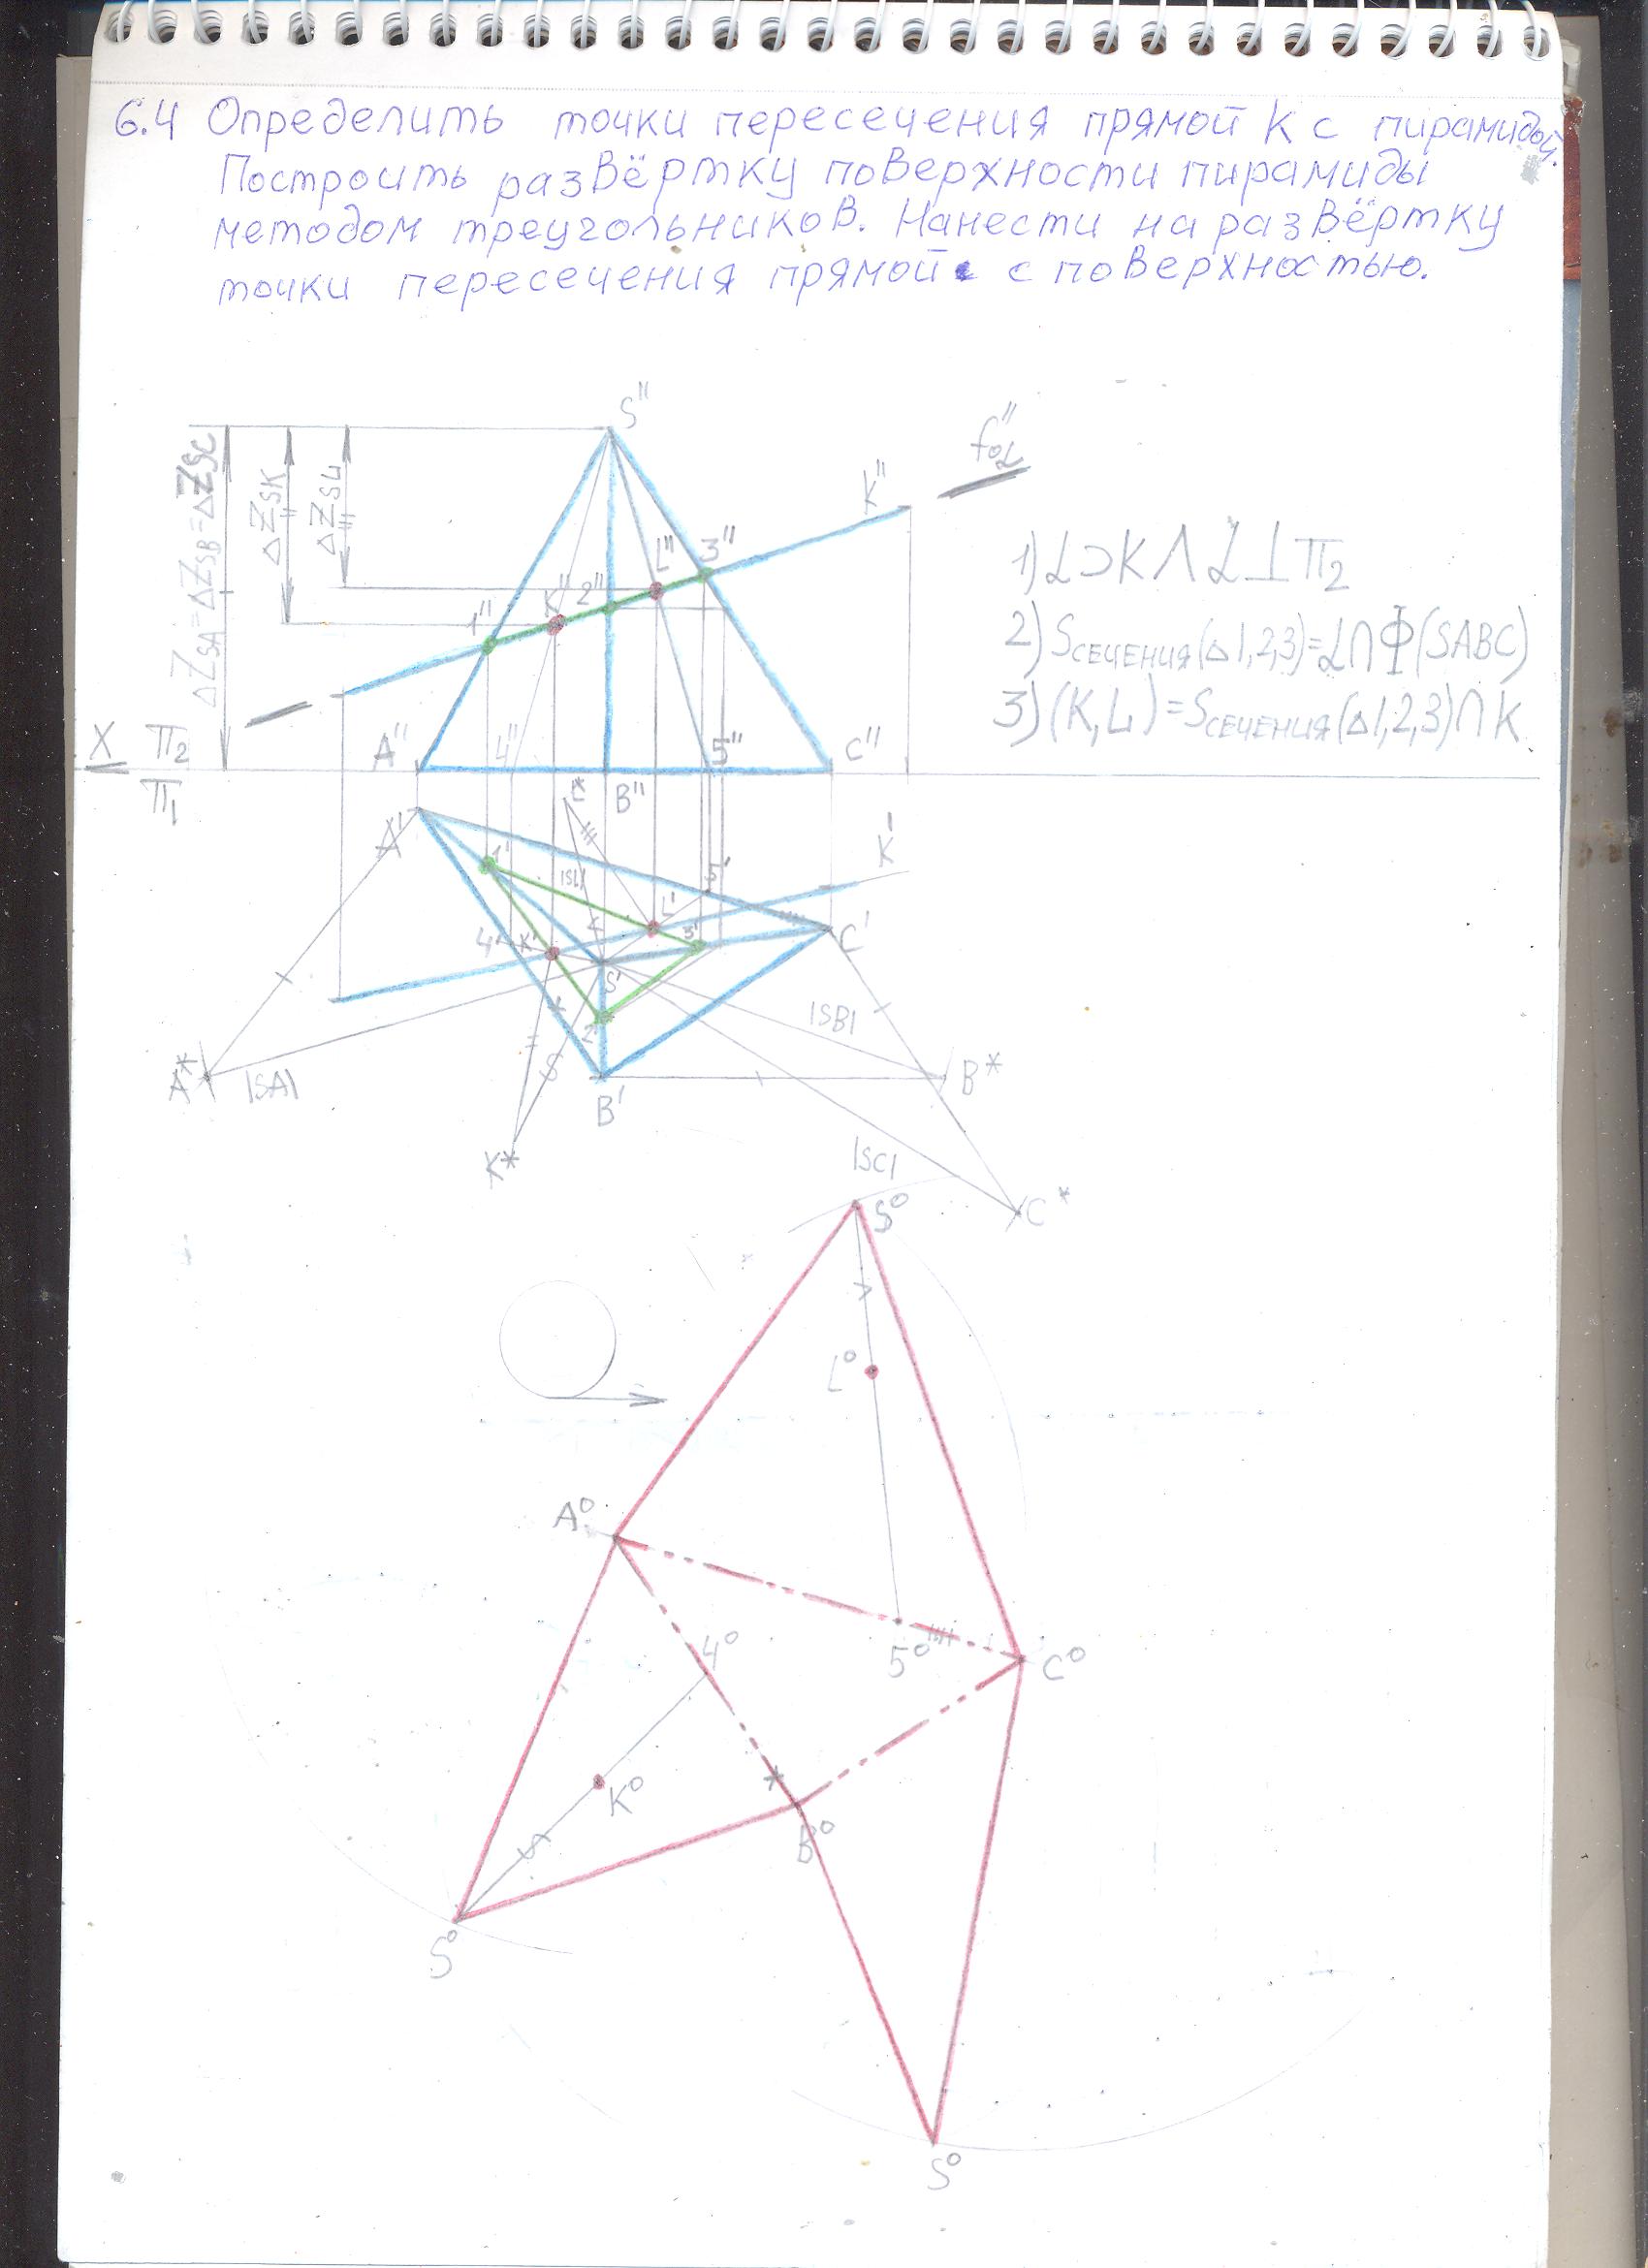 6.4 Определить точки пересечения прямой K с пирамидой.
Построить развёртку поверхности пирамиды
методом треугольников. Нанести на развёртку
точки пересечения прямой с поверхностью.
S''
f₀α''
K''
ΔZSA=ΔZSB=ΔZSC
ΔZSK
ΔZSL
1'' K'' 2'' L'' 3''
1) α⊃K∧α⊥π₂
2) Sсечения(Δ1,2,3)=α∩Φ(SABC)
3) (K,L)=Sсечения(Δ1,2,3)∩K
X π₂
π₁
A'' 4'' B'' 5'' C''
A' K'
1' |SL| 5'
4' K' L' 3' C'
S'
2'
|SB|
A* |SA| B' B*
K*
|SC|
C*
S⁰
L⁰
A⁰
4⁰ 5⁰ C⁰
K⁰
B⁰
S⁰
S⁰